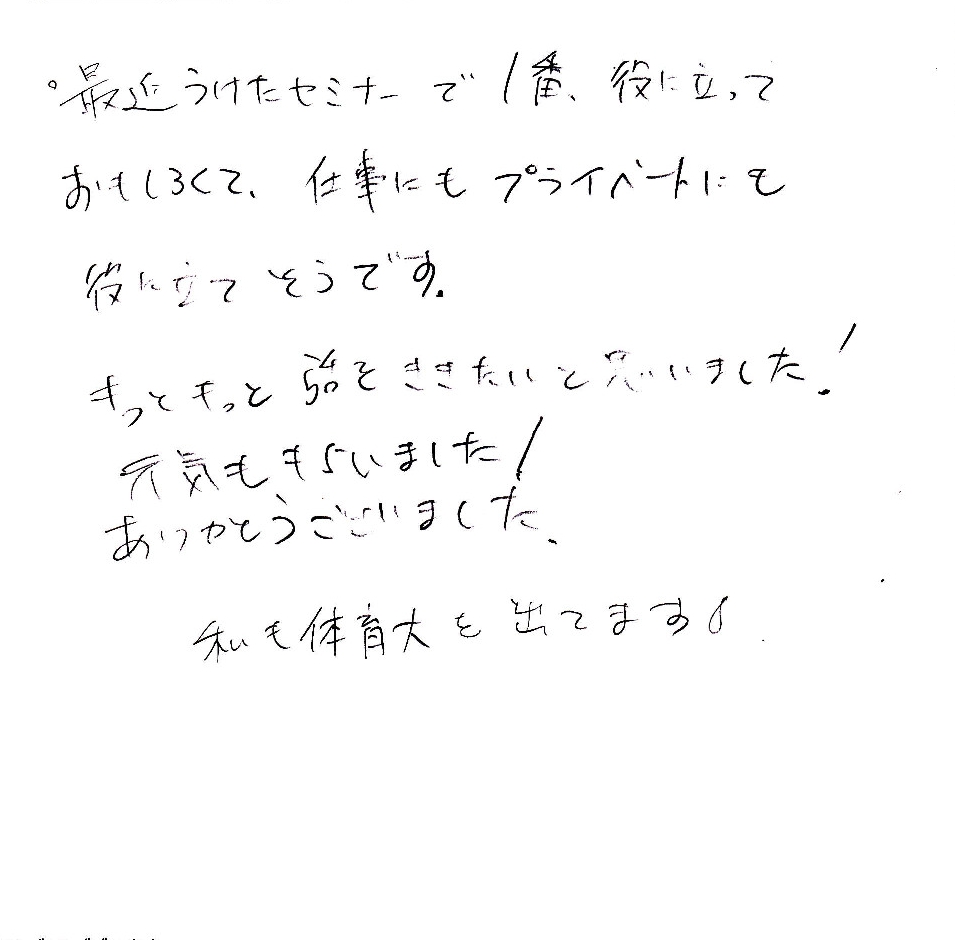 。最近うけたセミナーで1番、役に立って
おもしろくて、仕事にもプライベートにも
役に立てそうです。
もっともっと をききたいと思いました!
元気ももらいました!
ありがとうございました。
私も体育大を出てます